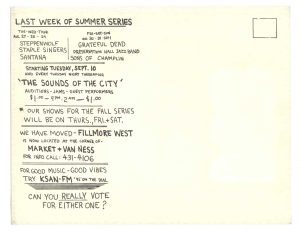 LAST WEEK OF SUMMER SERIES
TUE-WED-THUR
AUG. 27-28-29
STEPPENWOLF
STAPLE SINGERS
SANTANA
FRI-SAT-SUN
AUG. 30-31-SEPT 1
GRATEFUL DEAD
PRESERVATION HALL JAZZ BAND
SONS OF CHAMPLIN
STARTING TUESDAY, SEPT. 10
AND EVERY TUESDAY NIGHT THEREAFTER
"THE SOUNDS OF THE CITY"
AUDITIONS - JAMS - GUEST PERFORMERS
$1.00 - 8PM-2AM - $1.00
* OUR SHOWS FOR THE FALL SERIES
WILL BE ON THURS., FRI. + SAT.
WE HAVE MOVED - FILLMORE WEST
IS NOW LOCATED AT THE CORNER OF -
MARKET + VAN NESS
FOR INFO CALL: 431-4106
FOR GOOD MUSIC - GOOD VIBES
TRY KSAN-FM 95 ON THE DIAL
CAN YOU REALLY VOTE
FOR EITHER ONE?